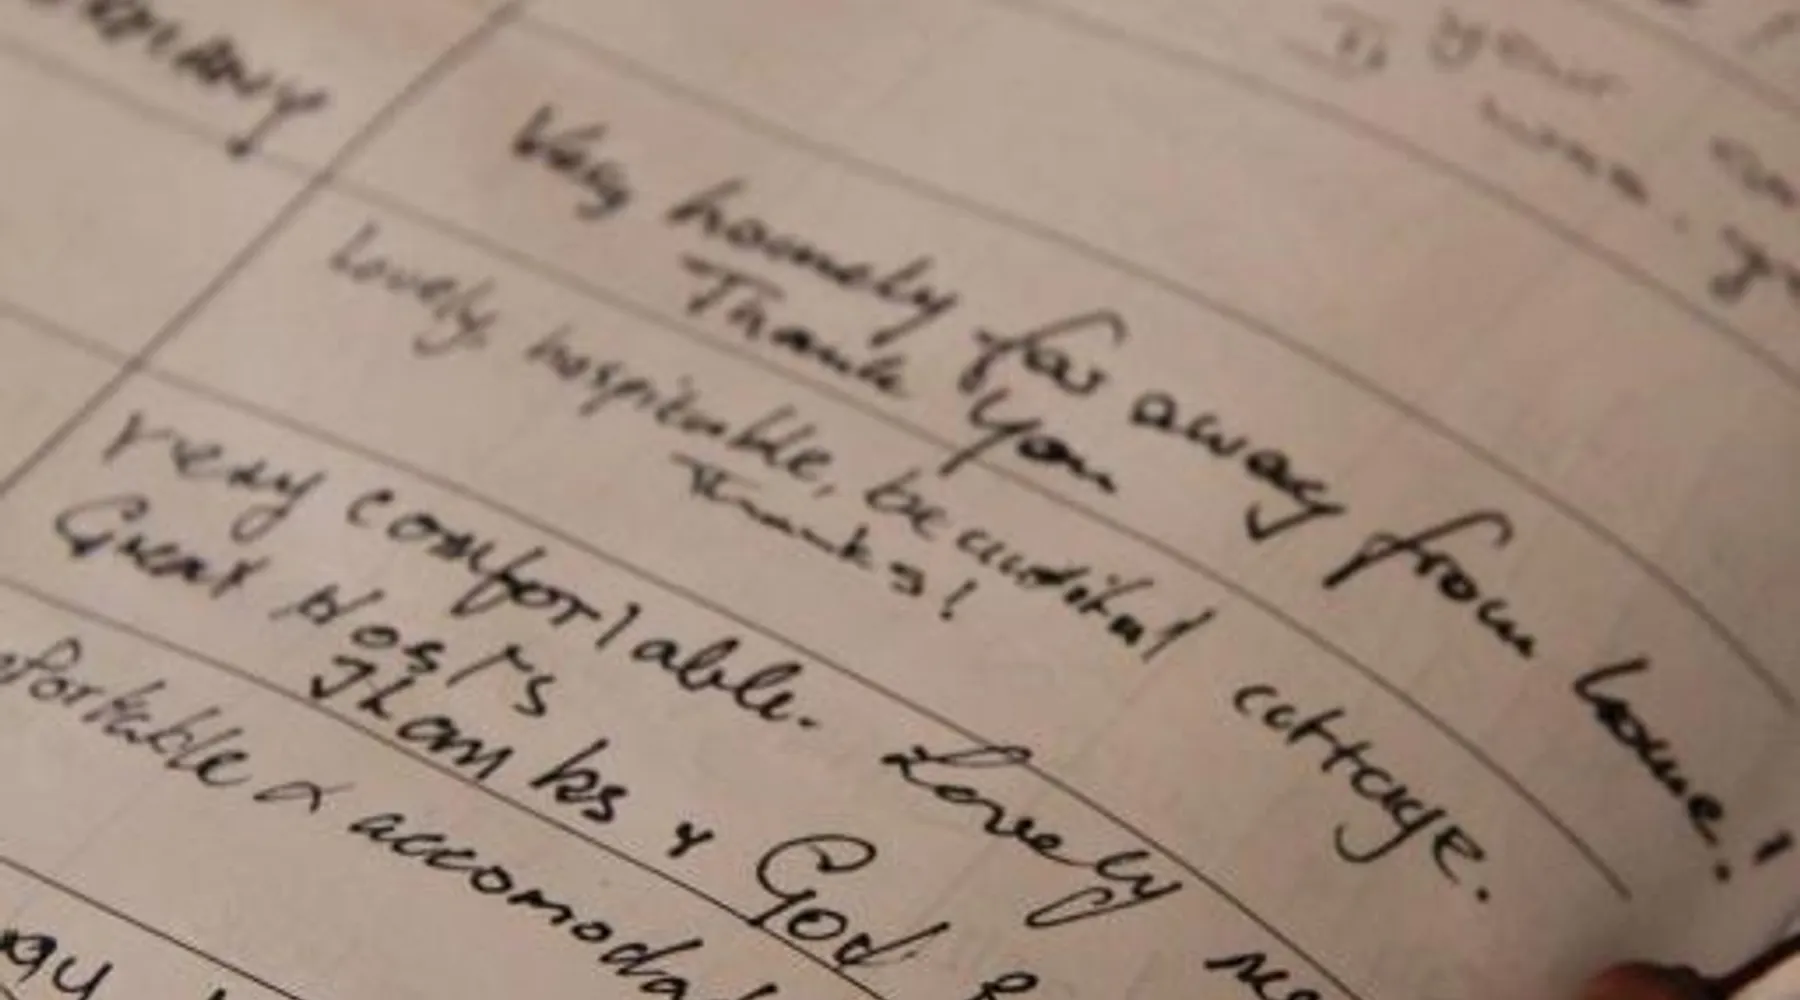 your
Very homely far away from home!
Thank you
Lovely, hospitable, beautiful cottage.
Thanks!
very comfortable. Lovely
Great Hosts
Thanks & God
accomoda